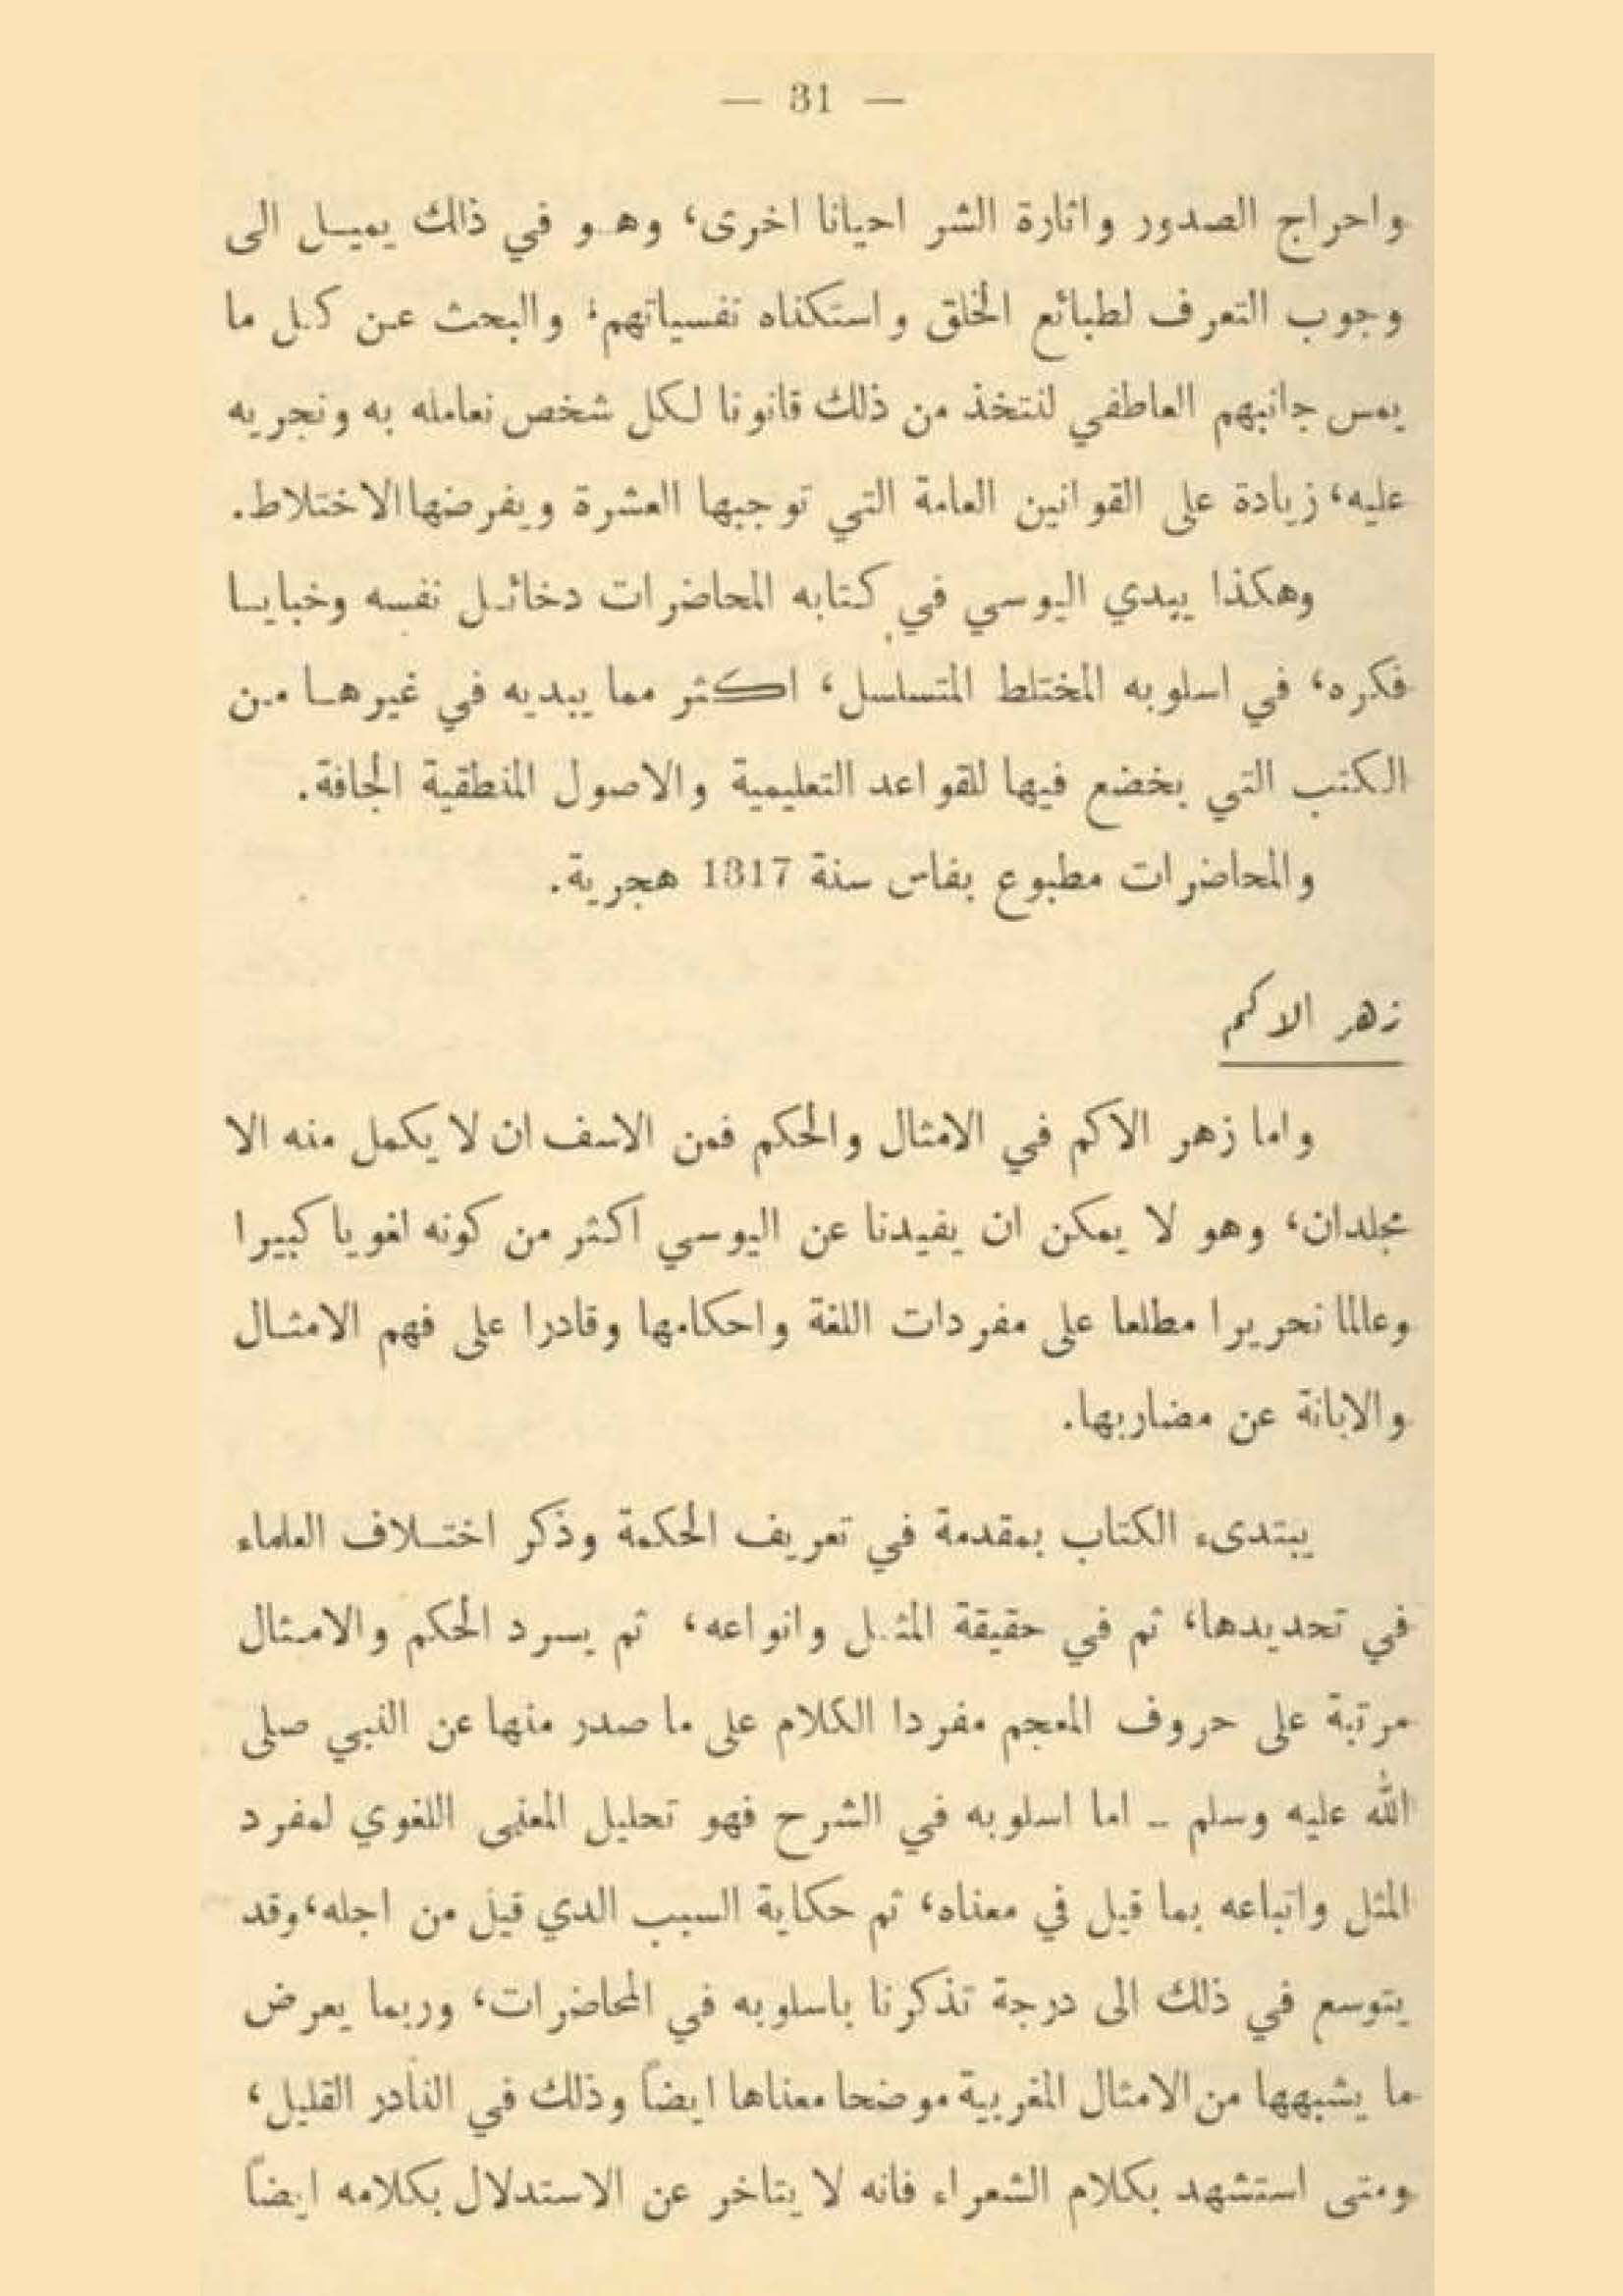 — 31 —
واحراج الصدور واثارة الشر احيانا اخرى، وهو في ذالك يميل الى
وجوب التعرف لطبائع الخلق واستكناه نفسياتهم، والبحث عن كل ما
يمس جانبهم العاطفي لنتخذ من ذلك قانونا لكل شخص نعامله به ونجريه
عليه، زيادة على القوانين العامة التي توجبها العشرة ويفرضها الاختلاط.
وهكذا يبدي اليوسي في كتابه المحاضرات دخائل نفسه وخبايا
فكره، في اسلوبه المختلط المتسلسل، اكثر مما يبديه في غيرها من
الكتب التي يخضع فيها للقواعد التعليمية والاصول المنطقية الجافة.
والمحاضرات مطبوع بفاس سنة 1317 هجرية.
زهر الاكم
واما زهر الاكم في الامثال والحكم فمن الاسف ان لا يكمل منه الا
مجلدان، وهو لا يمكن ان يفيدنا عن اليوسي اكثر من كونه لغويا كبيرا
وعالما نحريرا مطلعا على مفردات اللغة واحكامها وقادرا على فهم الامثال
والابانة عن مضاربها.
يبتدىء الكتاب بمقدمة في تعريف الحكمة وذكر اختلاف العلماء
في تحديدها، ثم في حقيقة المثل وانواعه، ثم يسرد الحكم والامثال
مرتبة على حروف المعجم مفردا الكلام على ما صدر منها عن النبي صلى
الله عليه وسلم - اما اسلوبه في الشرح فهو تحليل المعنى اللغوي لمفرد
المثل واتباعه بما قيل في معناه، ثم حكاية السبب الدي قيل من اجله، وقد
يتوسع في ذلك الى درجة تذكرنا باسلوبه في المحاضرات، وربما يعرض
ما يشبهها من الامثال المغربية موضحا معناها ايضاً وذلك في النادر القليل،
ومتى استشهد بكلام الشعراء فانه لا يتاخر عن الاستدلال بكلامه ايضاً